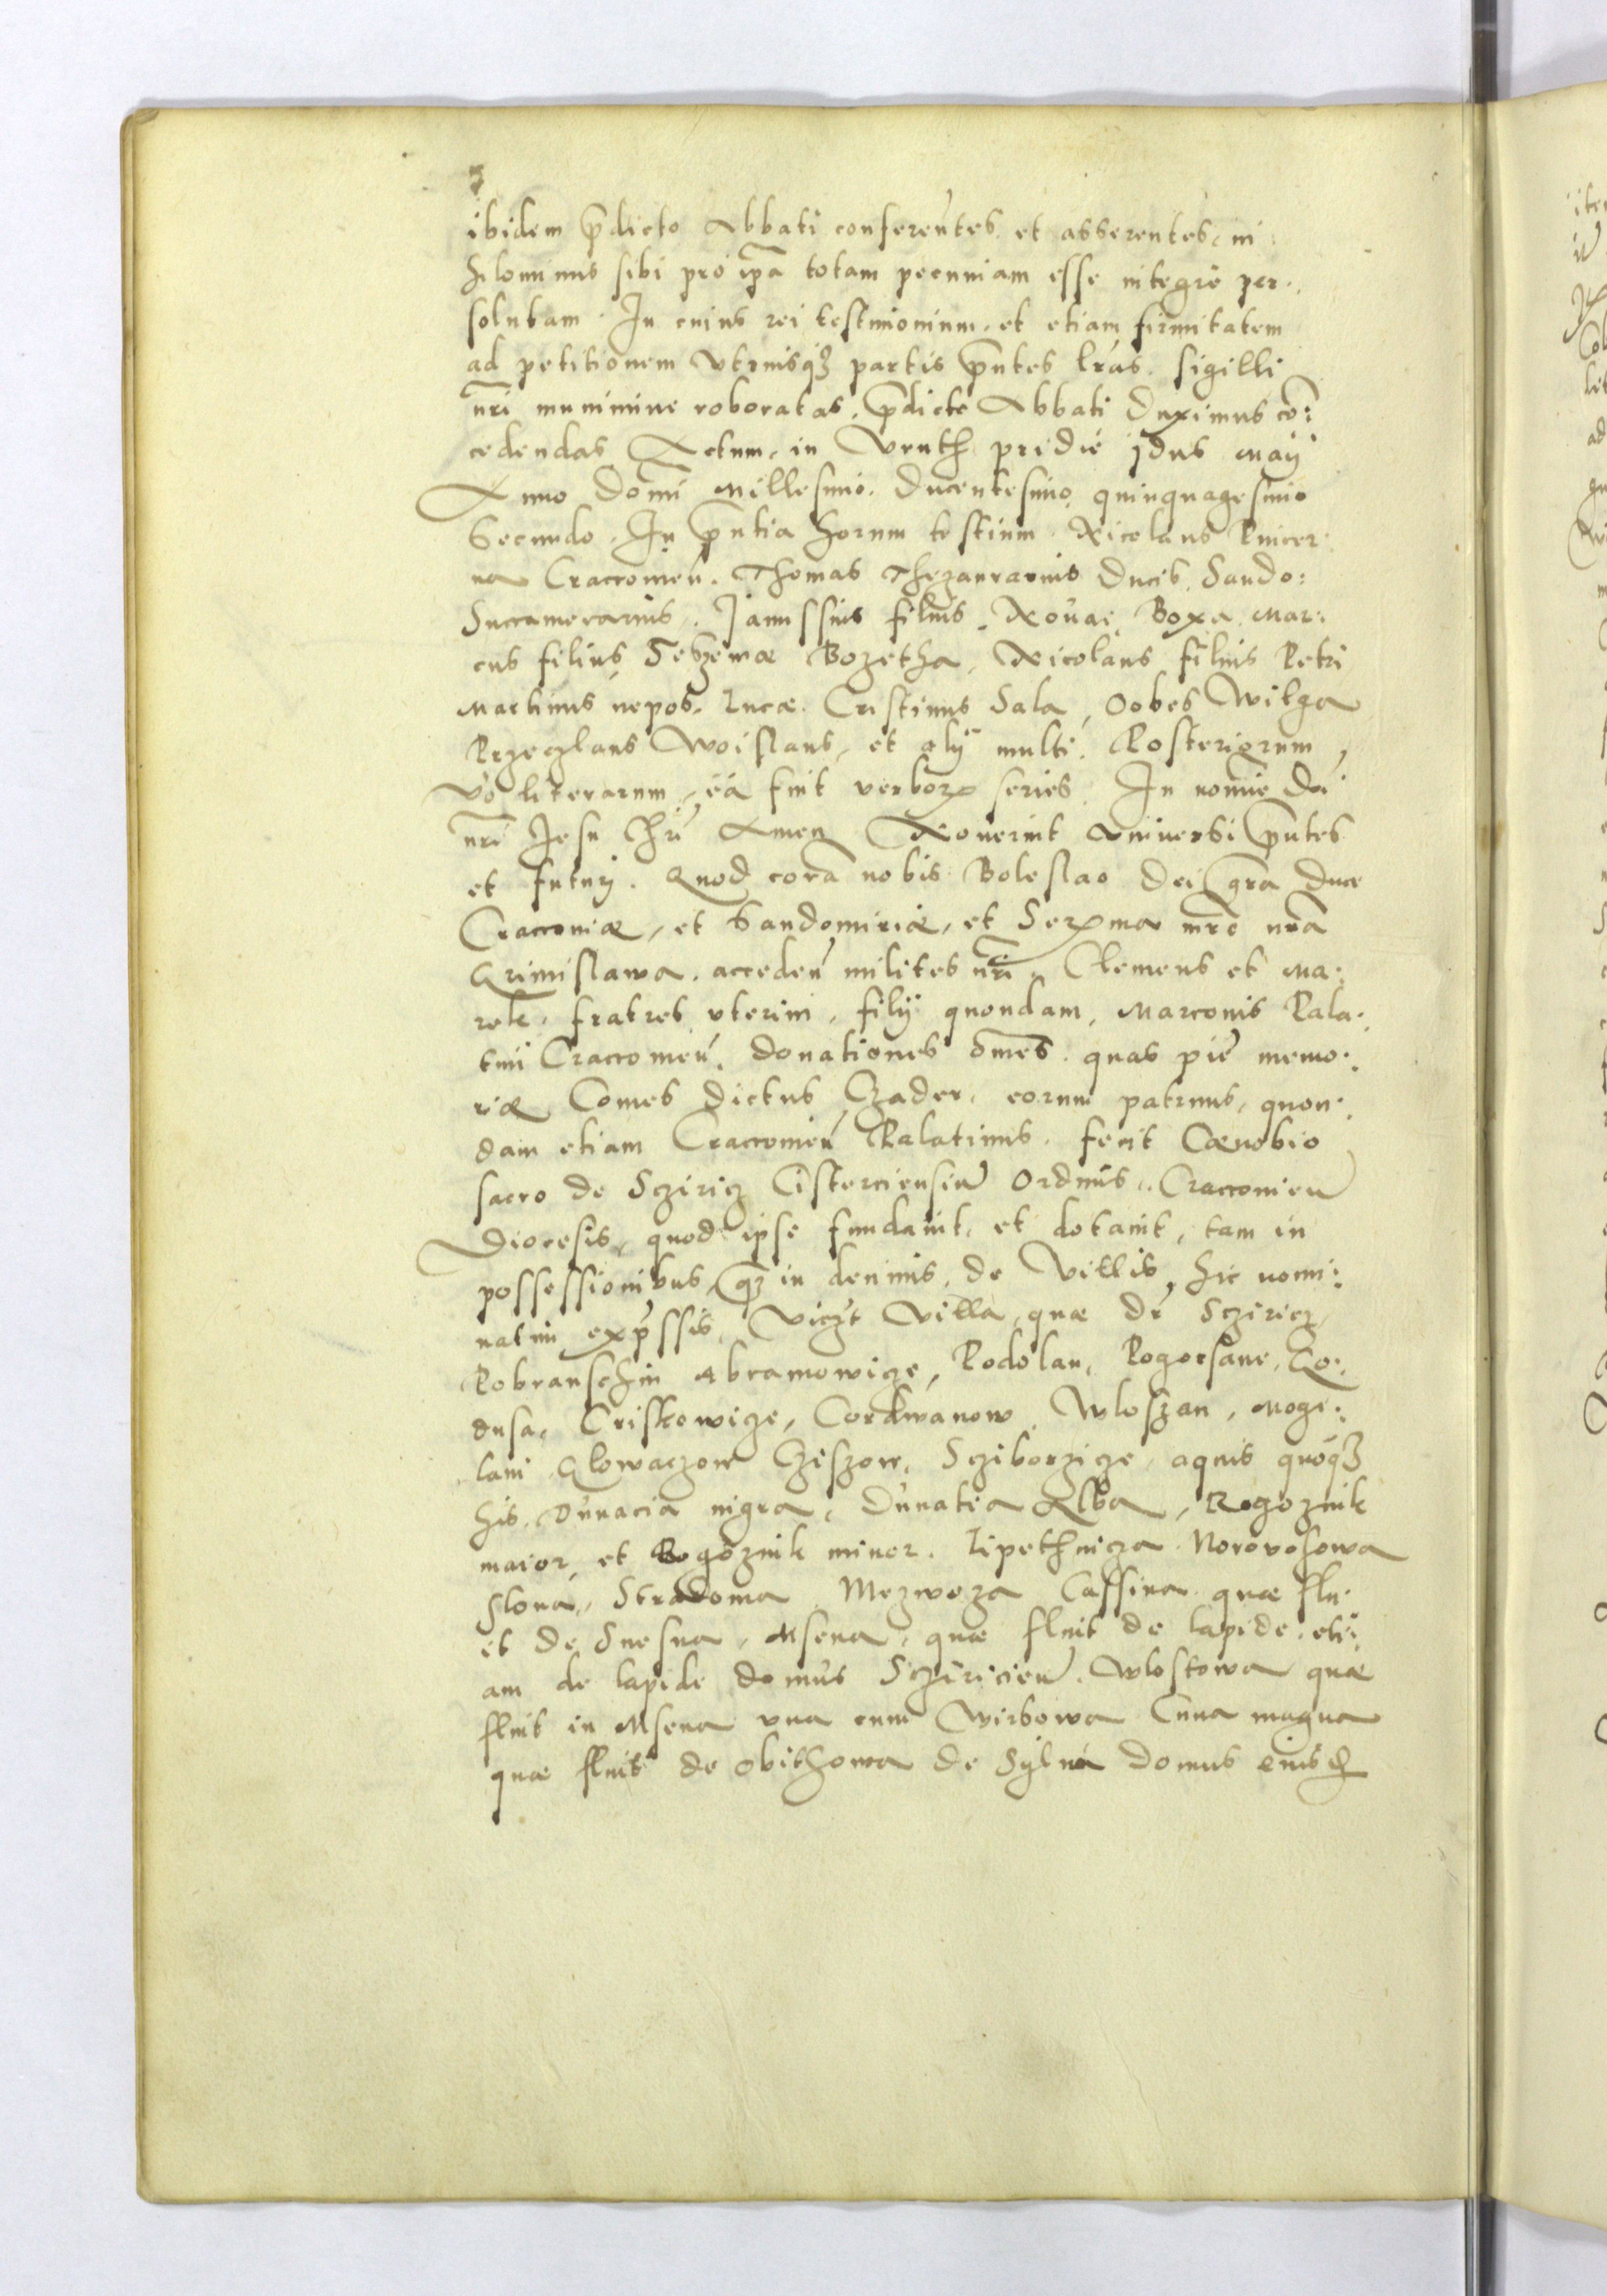 ibidem p̄dicto Abbati conferentes et asserentes, ni
hilominus sibi pro ip̄a totam pecuniam esse integre per.
solutam. In cuius rei testimonium, et etiam firmitatem
ad petitionem vtriusq3 partis p̄ntes lr̄as. sigilli
nr̄i munimine roboratas, p̄dicte Abbati Duximus cō:
cedendas Actum, in Vruth pridie idus Maÿ
Anno Domī Millesimo. Ducentesimo quinquagesimo
Secundo. In p̄ntia horum testium. Nicolaus Pincer
na Craccouieñ. Thomas Thezaurarius Ducis, Sando:
Succamerarius. Janussius filius Nouai Boxa, Mar:
cus filius Bozetha, Nicolaus filius Petri
Martinus nepos. Lucæ. Cristinus Sala, Oobes Witga
Przeczlaus Woislaus, et alÿ multi. Posteriorum
vō literarum, eā fuit verborꝝ series. In nomine Dni
nr̄i Jesu Chri Amen Nouerint vniuersi p̄ntes
et futuri. Quod corā nobis Boleslao Dei grā Duce
Cracouiæ, et Sandomiriæ, et Serꝝma mrē nrā
Grimislawa. accedeñ milites nr̄i, Clemens et Ma:
rek. fratres vterini, filÿ quondam, Marconis Pala:
tini Craccouieñ. donationes ōmes. quas piæ memo:
riæ Comes dictus Czader. eorum patruus, quon:
dam etiam Craccouieñ Palatinus. fecit Cænobio
sacro de Scziricz Cisterciensiū Ordinis. Craccouieñ
Diocesis, quod ipse fundauit, et dotauit, tam in
possessionibus, q3 in decimis, de Villis, hic nomi:
natim exp̄ssis, Viczt Villa, quæ dr̄ Sczericz,
Pobranschin Abramowicze, Podolan, Pogorsane, Go:
dusa, Criskowicze, Cordwanow, Wloszan, Mogi:
lani Glowaczow Cziszow, Scziborzicze, aquis quoq3
his. Dunacia nigra, Dunatia Alba, Rogoznik
maior, et Rogoznik minor. Lipethnicza Morovosowa
Slona, Stradoma Mezwoza Cassina quæ flu:
it de Snesna, Msena, quæ fluit de lapide, eti:
am de lapide domus Scziricieñ. Wlostowa quæ
fluit in Msena vna cum Wirbowa Cuna magna
quæ fluit de Obithowa de Sylua domus eiusd̄